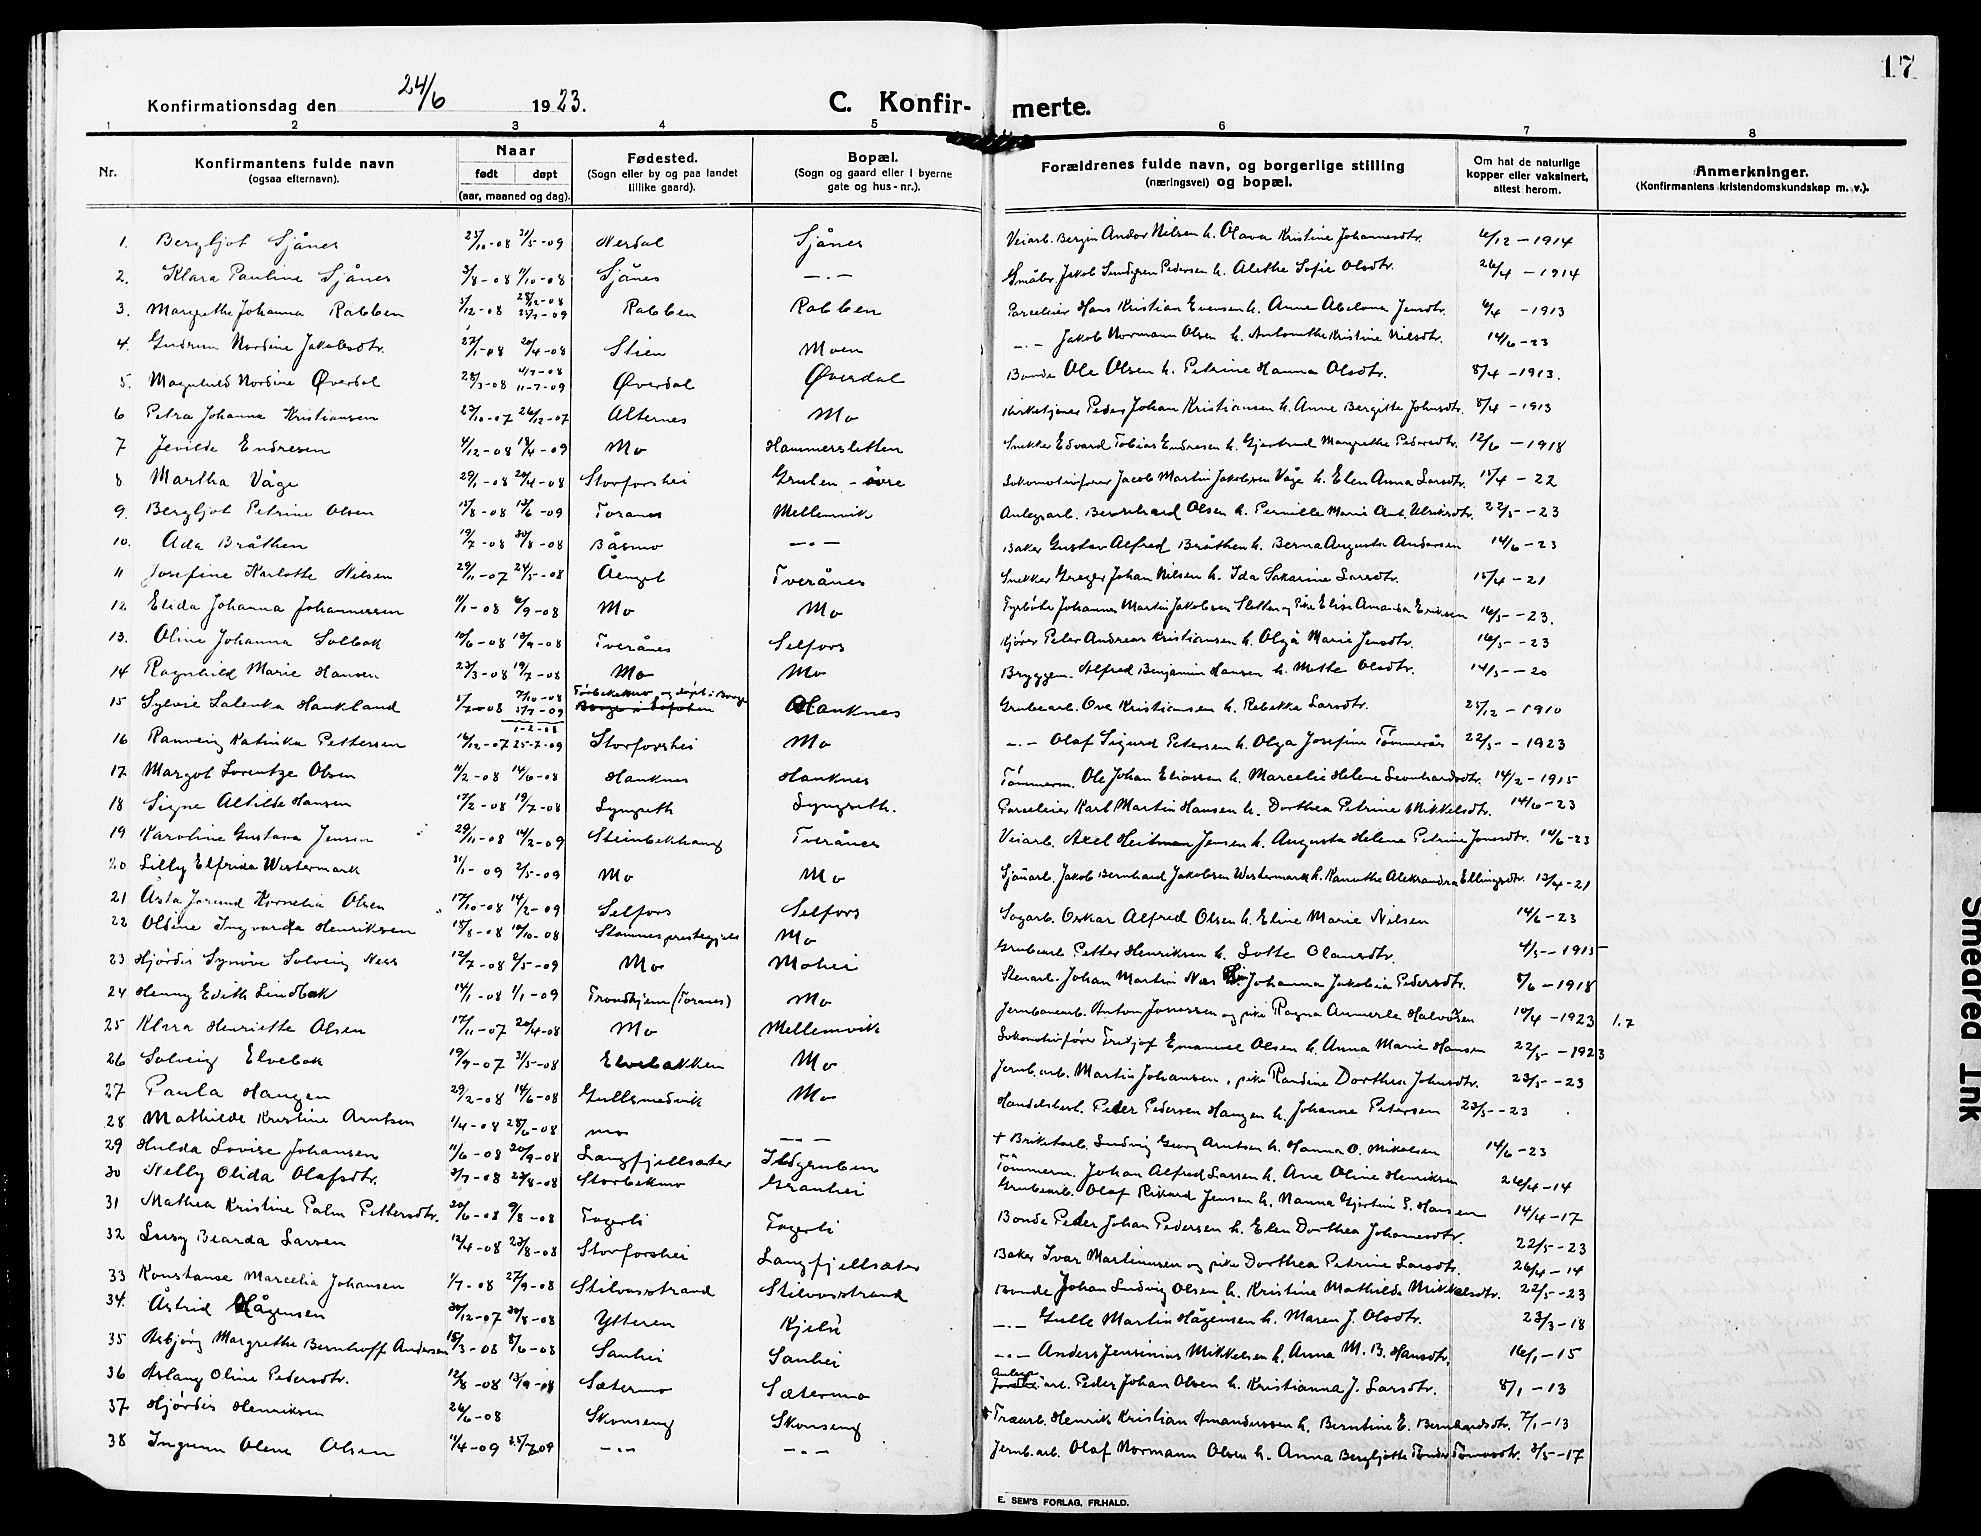 17
Konfirmationsdag den 24/6 1923. C. Konfir- merte.
1 2 3 4 5 6 7 8
Nr. Konfirmantens fulde navn (ogsaa efternavn). Naar født døpt (aar, maaned og dag). Fødested. (Sogn eller by og paa landet tillike gaard). Bopæl. (Sogn og gaard eller i byerne gate og hus-nr.). Forældrenes fulde navn, og borgerlige stilling (næringsvei) og bopæl. Om hat de naturlige kopper eller vaksinert, attest herom. Anmerkninger. (Konfirmantens kristendomskundskap m. v.).
1. Bergljot Sjånes 31/5-09 Nerdal Sjånes Veiarb. Bergin Andor Nilsen h. Olava Kristine Johannesdtr. 6/12-1914
2. Klara Pauline Sjånes 3/8-08 11/10-08 Sjånes -.- Småbr. Jakob Pedersen h. Alethe Sofie Olsdtr. 26/4-1914
3. Margrethe Johanna Rabben 5/12-08 28/12-08 Rabben Rabben Parceleier Hans Kristian Evensen h. Anne Abelona Jensdtr. 6/4-1913
4. Gudrun Nordine Jakobsdtr. 27/1-08 20/4-08 Stien Moen -.- Jakob Normann Olsen h. Antonethe Kristine Nilsdtr. 14/6-23
5. Magnhild Nordine Øverdal 28/3-08 11-7-09 Øverdal Øverdal Bonde Ole Olsen h. Petrine Hanna Olsdtr. 8/4-1913.
6 Petra Johanna Kristiansen 23/10-07 26/12-07 Alternes Mo Kirketjener Peder Johan Kristiansen h. Anne Bergitte Johnsdtr. 8/4-1913
7 Jenilde Endresen 4/12-08 18/4-09 Mo Hammersletten Snekker Edvard Tobias Endresen h. Gjertrud Margrethe Pedersdtr. 12/6-1918
8 Martha Våge 29/1-08 20/4-08 Storforshei Gruben - øvre Lokomotivfører Jacob Martin Jakobsen Våge h. Elen Anna Larsdtr. 15/4-22
9. Bergljot Petrine Olsen 15/8-08 13/6-09 Toranes Mellemvik Anlegsarb. Bernhard Olsen h. Pernille Marie Ant. Ulriksdtr. 22/5-23
10. Ada Bråthen 19/7-08 30/8-08 Båsmo -.- Baker Gustav Alfred Bråthen h. Berna Augusta Andersen 14/6-23
11 Josefine Karlotte Nilsen 29/11-07 24/5-08 Åenget Tverånes Snekker Greger Johan Nilsen h. Ida Sakarine Larsdtr. 15/4-21
12 Elida Johanna Johannessen 11/1-08 6/9-08 Mo Mo Fyrbøter Johannes Martin Jakobsen Sletten og Pike Elise Amanda Eriksen 16/5-23.
13. Oline Johanna Solbak 10/6-08 13/9-08 Tverånes Selfors Kjører Peter Andreas Kristiansen h. Olga Marie Jensdtr. 16/5-23
14 Ragnhild Marie Hansen 23/3-08 19/7-08 Mo Mo Bryggem. Alfred Benjamin Hansen h. Mette Olsdtr. 14/5-20
15 Sylvie Salenka Haukland 5/7-08 7/10-08 og døpt i Hauknes Grubearb. Ove Kristiansen h. Rebekka Larsdtr. 28/12-1910
16 Ranveig Katinka Pettersen 16/12-07 1-2-08 25-7-09 Storforshei Mo -.- Olaf Sigurd Petersen h. Olga Josefine Tømmerås 22/5-1923
17 Margot Lorentze Olsen 11/2-08 14/6-08 Hauknes Hauknes Tømmerm. Ole Johan Eliassen h. Marcelie Helene Leonhardsdtr. 14/2-1915
18 Signe Altilde Hansen 17/2-08 19/7-08 Lyngreth Lyngreth. Parceleier Karl Martin Hansen h. Dorthea Petrine Mikkelsdtr. 14/6-23
19 Karoline Gustava Jensen 29/11-08 14/2-09 Steinbekkhaug Tverånes Veiarb. Axel Heitman Jensen h. Augusta Helene Petrine Jonsdtr. 14/6-23
20 Lilly Elfrida Westermark 31/1-09 2/5-09 Mo Mo Sjauarb. Jakob Bernhard Jakobsen Westermark h. Kanuthe Aleksandra Ellingsdtr. 13/4-21
21 Asta Jorund Kornelia Olsen 17/10-08 14/2-09 Selfors Selfors Sagarb. Oskar Alfred Olsen h. Eline Marie Nilsen 14/6-23
22 Oldine Ingvarda Henriksen 15/8-08 18/10-08 Stamnes prestegjeld Mo Grubearb. Petter Henriksen h. Lotte Olausdtr. 4/5-1915
23 Hjørdis Synøve Solveig Ness 12/7-08 2/5-09 Mo Mohei Stenarb. Johan Martin Næs h. Johanna Jakobia Pedersdtr. 8/6-1918
24 Henny Edith Lindbak 14/1-08 1/1-09 Trondhjem (Toranes) Mo Jernbanearb. Anton Jonassen og pike Ragna Annerle Halvorsen 10/4-1923 1.7
25 Klara Henriette Olsen 17/11-07 20/4-08 Mo Mellemvik Lokomotivfører Fritjof Emanuel Olsen h. Anna Marie Hansen 22/5-1923
26 Solveig Elvebak 19/9-07 31/5-08 Elvebakken Mo Jernb.arb. Martin Johansen, pike Randine Dorthea Johnsdtr. 23/5-23
27 Paula Haugen 29/2-08 14/6-08 Gullsmedvik Mo Handelsbest. Peder Pedersen Haugen h. Johanna Petersen 23/5-23
28 Mathilde Kristine Arntsen 1/4-08 28/6-08 Mo -.- + Briketarb. Ludvig Georg Arntsen h. Hanna O. Mikelsen 14/6-23
29 Hulda Lovise Johansen 11/6-08 20/9-08 Langfjellsæter Ildgruben Tømmerm. Johan Alfred Larsen h. Ane Oline Henriksen 26/4-14
30 Nelly Olida Olafsdtr. 3/7-08 23/8-08 Storbekmo Granhei Grubearb. Olaf Rikard Jensen h. Nanna Gjertine S. Hansen 14/4-17
31 Mathea Kristine Palm Pettersdtr. 20/6-08 9/8-08 Fagerli Fagerli Bonde Peder Johan Pedersen h. Elen Dorthea Johannesdtr. 22/5-23
32 Lusy Bearda Larsen 12/4-08 23/8-08 Storforshei Langfjellsæter Baker Ivar Martinusen og pike Dorthea Petrine Larsdtr. 26/4-14
33 Konstanse Marcelia Johansen 1/7-08 27/9-08 Stilvasstrand Stilvasstrand Bonde Johan Ludvig Olsen h. Kristine Mathilde Mikkelsdtr. 22/5-23
34. Åstrid Hågensen 30/12-07 30/8-08 Ytteren Kjelsi -.- Gulle Martin Hågensen h. Maren J. Olsdtr. 23/3-18
35 Asbjørg Margrethe Bernhoff Andersen 15/3-08 8/6-08 Sanhei Sanhei -.- Anders Jensenius Mikkelsen h. Anna M. B. Hansdtr. 16/1-15
36 Aslaug Oline Pedersdtr. 12/8-08 13/9-08 Sætermo Sætermo Anlegs arb. Peder Johan Olsen h. Kristianna J. Larsdtr. 8/1-13
37 Hjørdis Henriksen 26/6-08 Skonseng Skonseng + Træarb. Henrik Kristian Amandussen h. Berntine E. Bernhardsdtr. 7/1-13
38 Ingunn Olene Olsen 11/4-09 25/7-09 -.- -.- Jernb.arb. Olaf Normann Olsen h. Anna Bergljotte Tønder Tomasdtr. 3/5-17
E. SEM'S FORLAG, FR.HALD.
Smeared Ink